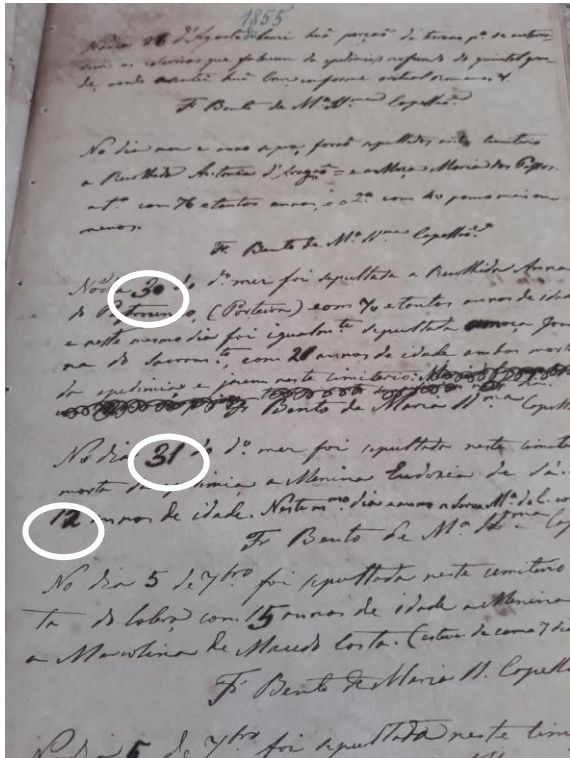 1855
No dia 28 d'Agosto benzi huã porção de terra pª se enterra-
rem as que falecerem da epidemia no fundo do quintal gran-
de, onde huã Cruz, conforme o ritual romano &.
Fr. Bento de Mª SSma Capellão.
No dia mez e anno supra, forão sepultadas neste cemiterio
a Recolhida Antonia d'Aragão = e a Moça Maria dos Passos.
a 1ª com 76 e tantos annos, e a 2ª com 40 pouco mais ou
menos.
Fr. Bento de Mª SSma Capellão.
No dia 30 do dº mez foi sepultada a Recolhida Anna
do (Porteira) com 70 e tantos annos de ida
e neste mesmo dia foi igualmte sepultada a moça
na do Sacramto com 28 annos de idade ambas mort
da epidemia e jazem neste cimiterio.
Fr Bento de Maria SSma Capell
No dia 31 do dº mez foi sepultada neste cimite
morta da epidemia a Menina Eudoxia de
12 annos de idade. Neste mmo dia e anno Mª de L. co
Fr Bento de Mª SSma Cap
No dia 5 de 7bro foi sepultada neste cemiterio
ta do Cobre com 15 annos de idade a Menina
a Marcolina de Macedo Costa. (esteve de cama 7 dia
Fr Bento de Maria SS. Capell
No dia 5 de 7bro foi sepultada neste cim